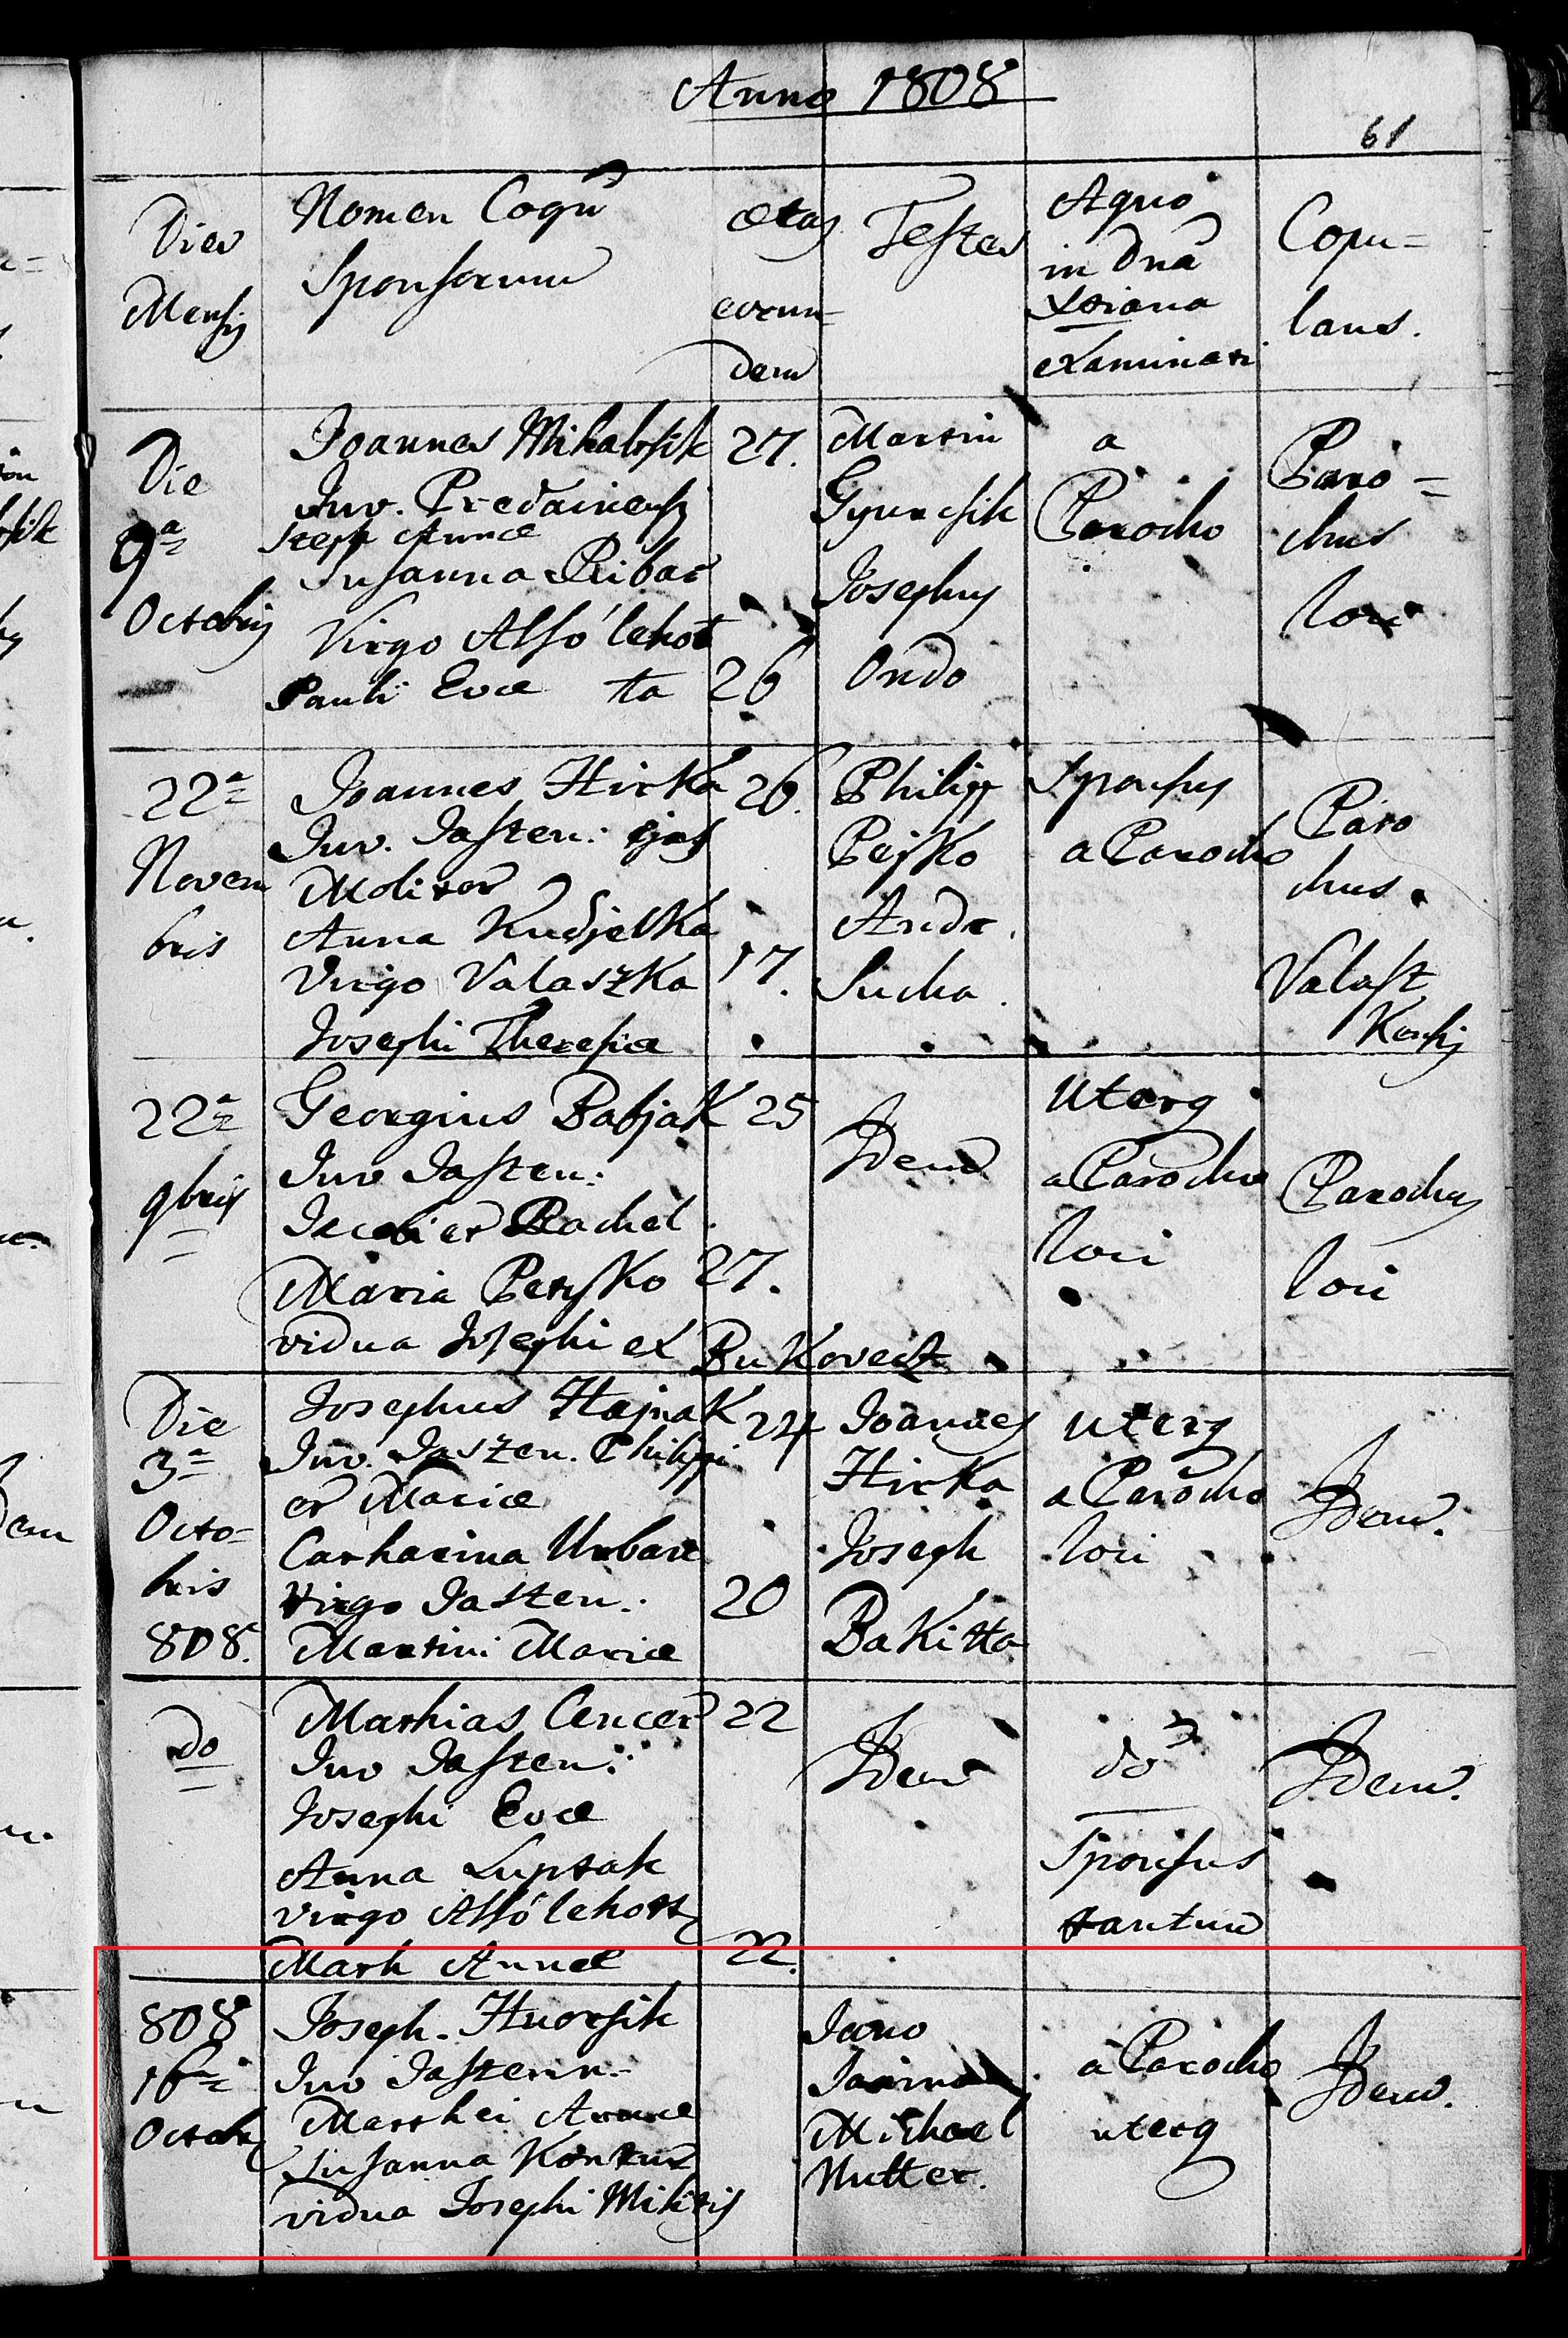 Anno 1808
61
Dies
Mensis
Nomen Cogn
Sponsorum
ætas
eorun=
dem
Testes
Aquo
in Dna
Xtiana
examinati
Copu=
lans.
Die
9a
Octobris
Joannes Mihalcsik
Juv. Predainensis
Steph Annæ
Susanna Ribar
Virgo Alsó lehot
Pauli Evæ ta
27.
26
Martin
Gyurcsik
Josephus
Ondo
a
Parocho
Paro=
chus
loci
22a
Novem
bris
Joannes Hirka
Juv. Jasten: ejus
Molitor
Anna Kudjelka
Virgo Valaszka
Josephi Theresiæ
26.
17.
Philipp
Pejko
Andr.
Sucha.
Sponsus
a Parocho
Paro
chus.
Valast
Kensis
22a
9bris
Georgius Babjak
Juv Jasten:
Jacobi et Rachel.
Maria Petrsko
vidua Josephi ex Bukovecz
25
27.
Idem
Uterq
a Parocho
loci
Parochus
loci
Die
3a
Octo-
bris
808.
Josephus Hajnak
Juv. Jaszen. Philippi
et Mariæ
Catharina Urban
Virgo Jasten.
Martini Mariæ
24
20
Joannes
Hirka
Joseph
Bakitta
Uterq
a Parocho
loci
Idem.
do
Mathias Cencer
Juv Jasten:
Josephi Evæ
Anna Luptak
virgo Alsó lehott
Math Annæ
22
22.
Idem
do
Sponsus
tantum
Idem.
808
16a
Octobr
Joseph. Huorsik
Juv Jastenn.
Matthei Annæ
Susanna Kontur
vidua Josephi
Jano
Michael
Nutter.
a Parocho
uterq
Idem.